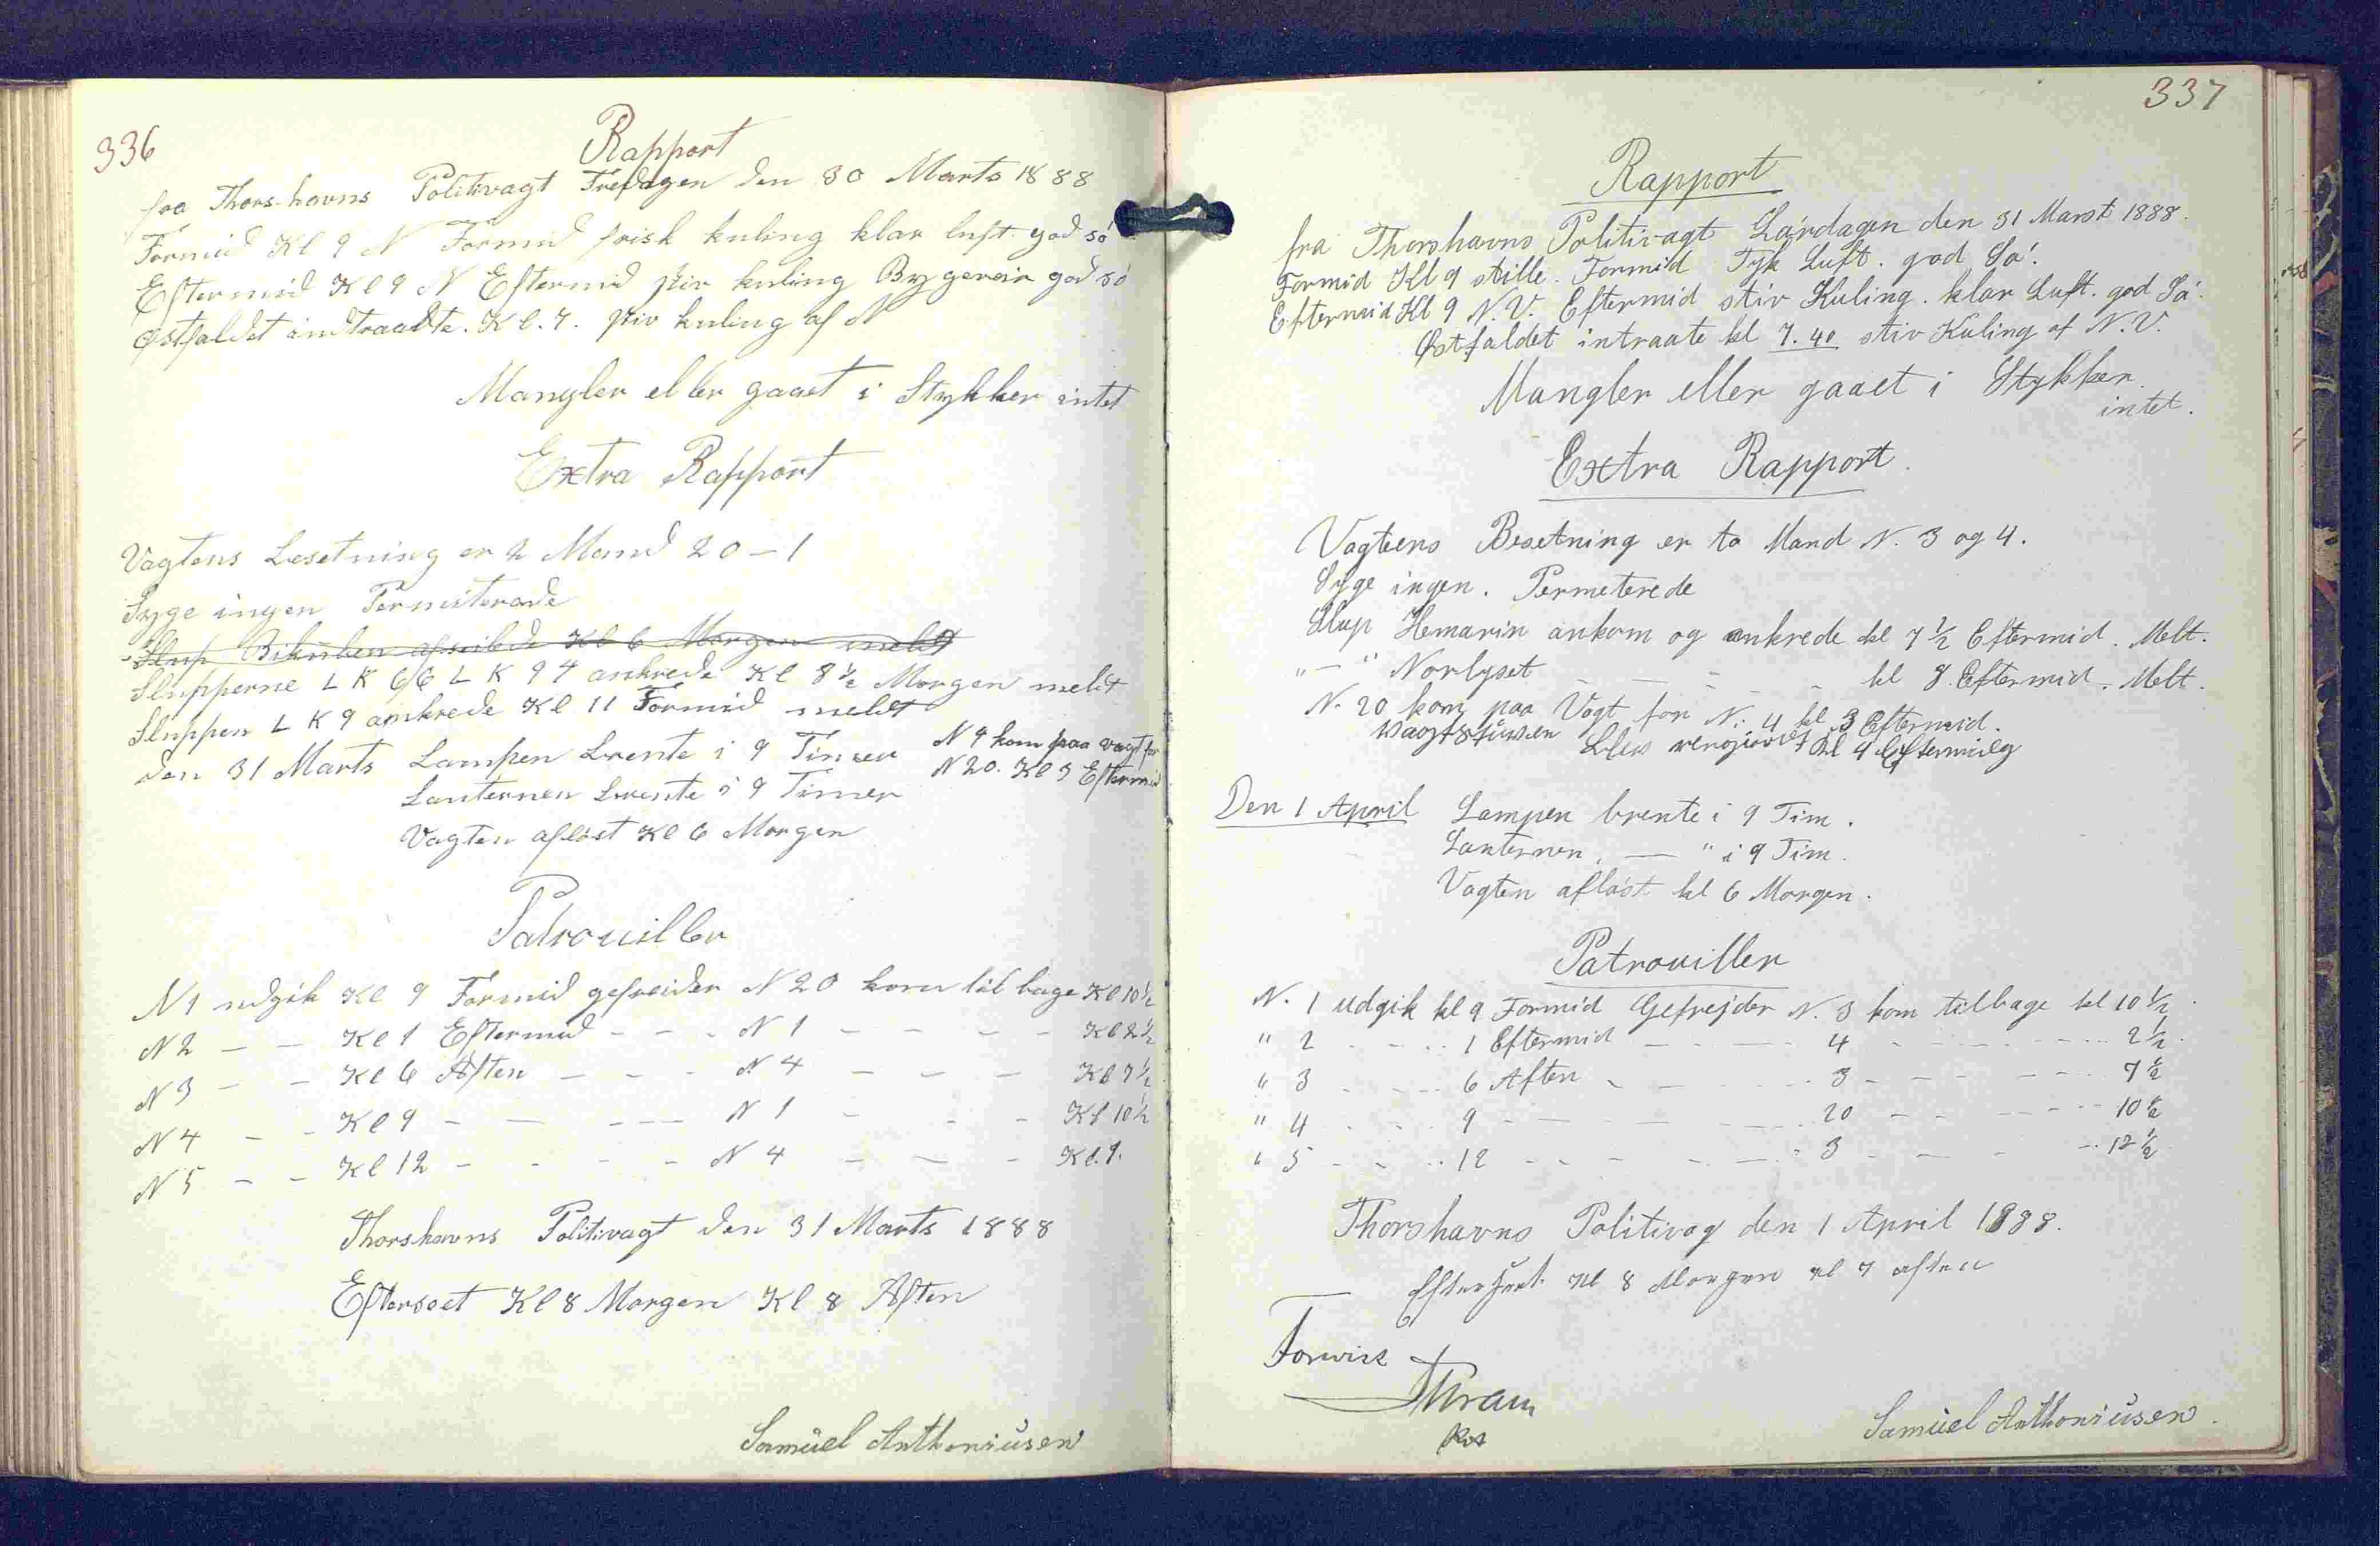 336
Rapport
fra Thors-havns Politivagt Fredagen den 30 Marts 1888
Formid Kl 9 N Formid frisk kuling klar luft god sö
Eftermid Kl 9 N Eftermid stiv kuling Bygeveir god sö
Østfaldet indtraadte. Kl. 7. stiv kuling af N
Mangler eller gaaet i Stykker intet
Extra Rapport
Vagtens Besetning er 2 Mand 20 – 1
Syge ingen Permiterede
Slup Bikuben afseilede Kl 6 Morgen meldt
Slupperne L K 66 L K 94 ankrede Kl 8 ½ Morgen meldt
Sluppen L K 9 ankrede Kl 11 Formid meldt
den 31 Marts Lampen brente i 9 Timer N 4 kom paa vagt for
Lanternen brente i 9 Timer N 20. Kl 3 Eftermid
Vagten aflöst Kl 6 Morgen
Patrouiller
N 1 udgik Kl 9 Formid gefreider N 20 kom til bage Kl 10 ½
N 2 – – Kl 1 Eftermid – – – N 1 – – – – Kl 2 ½
N 3 – – Kl 6 Aften – – – N 4 – – – Kl 7 ½
N 4 – – Kl 9 – – – – – N 1 – – – Kl 10 ½
N 5 – – Kl 12 – – – – N 4 – – – Kl. 1.
Thorshavns Politivagt den 31 Marts 1888
Efterseet Kl 8 Morgen Kl 8 Aften
Samüel Anthoniüsen
337
Rapport
fra Thorshavns Politivagt Lördagen den 31 Marst 1888.
Formid Kl 9 stille. Formid Tyk Luft. god Sö.
Eftermid Kl 9 N.V. Eftermid stiv Kuling. klar Luft. god Sö.
Østfaldet intraate kl 7.40 stiv Kuling af N.V.
Mangler eller gaaet i Stykker
intet.
Extra Rapport.
Vagteens Besetning er to Mand N. 3 og 4.
Syge ingen. Permeterede
Slup Hemarin ankom og ankrede kl 7 ½ Eftermid. Melt.
" — " Norlyset – – – – – kl 8. Eftermid. Melt.
N. 20 kom paa Vagt for N: 4 kl 3 Eftermid.
Vagtstüven blev rengjordt Kl 4 Eftermidg
Den 1 April Lampen brente i 9 Tim.
Lanternen. — " i 9 Tim.
Vagten aflöst kl 6 Morgen.
Patrouiller
N. 1 udgik kl 9 Formid Gefrejder N. 3 kom tilbage kl 10 ½
" 2 – – – 1 Eftermid – – – – 4 – – – – – 2 ½.
" 3 – – – 6 Aften – – – – 3 – – – – – 7 ½
" 4 – – – 9 – – – – – 20 – – – – – 10 ½
" 5 – – – 12 – – – – – 3 – – – – 12 ½
Thorshavns Politivag den 1 April 1888.
Efterseet Kl 8 Morgen Kl 7 aften
Forvist
Samüel Anthoniüsen.